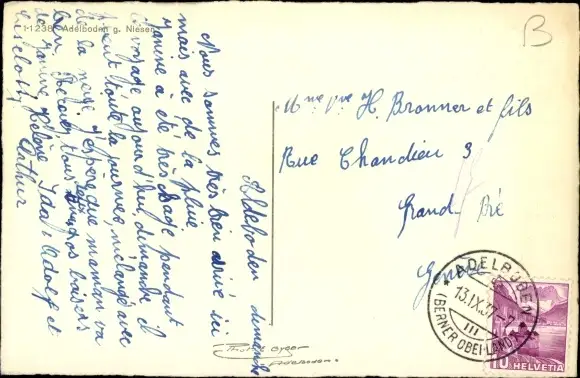 11238 Adelboden g. Niesen
B
Adelboden dimanche
Nous sommes très bien arrivé ici
mais avec de la pluie
Janine a été très sage pendant
le voyage aujourd'hui, dimanche il
pleut toute la journée, mélangé avec
de la neige. J'espère que maman va
bien. Recevez tous nos gros baisers
de Janine, Hélène Ida, Adolf et
Liselotte
Arthur
Mme Vve H. Bronner et fils
Rue Chandieu 3
Grand Pré
Genève
ADELBODEN
13.IX.37
III
(BERNER OBERLAND)
10 HELVETIA
Photo Gyger
Adelboden